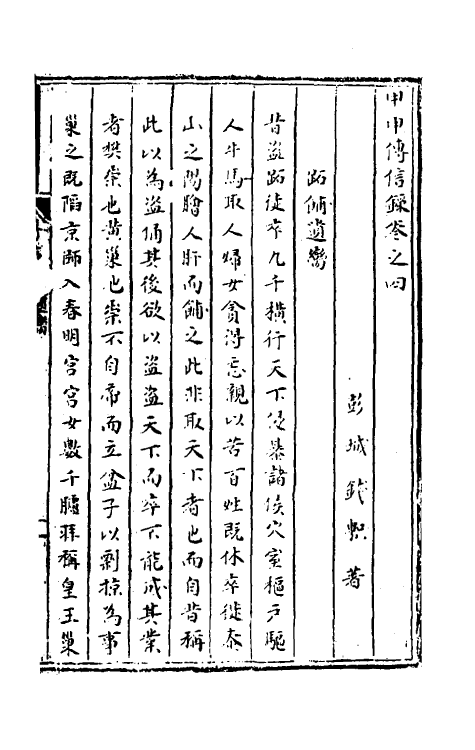 甲申傳信錄卷之四
彭城錢𣉙著
跖俑遺臠
昔盜跖徒卒九千橫行天下侵暴諸侯穴室樞戶驅
人牛馬取人婦女貪得忘親以苦百姓既休卒徙泰
山之陽膾人肝而餔之此非取天下者也而自昔稱
此以為盜俑其後欲以盜盜天下而卒不能成其業
者樊崇也黃巢也崇不自帝而立盆子以剽掠為事
巢之既陷京師入春明宮宮女數千臚拜稱皇王巢